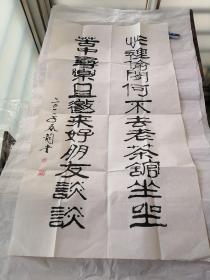 忙裡偷閒何不去老茶舘坐坐
苦中尋樂且邀來好朋友談談